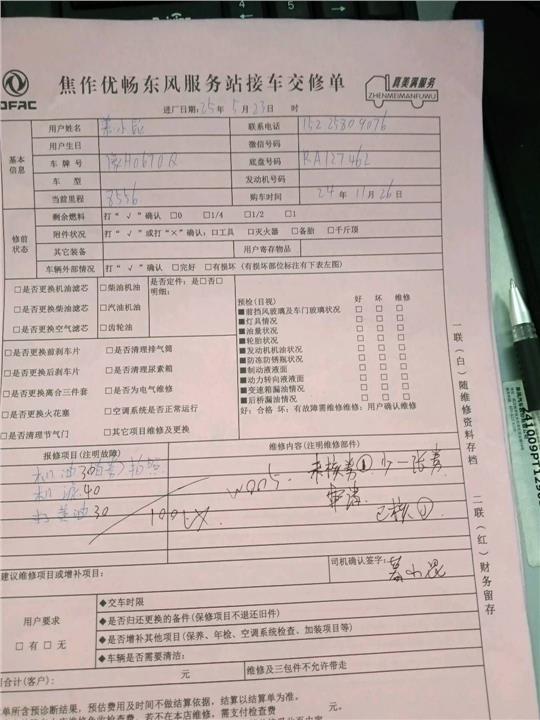 DFAC
焦作优畅东风服务站接车交修单
真美满服务
ZHENMEIMANFUWU
进厂日期: 25年 5月 23日 时
基本信息
用户姓名 联系电话 15225809076
用户生日 微信号码
车牌号 豫H0670R 底盘号码 RA127462
车型 发动机号码
当前里程 8556 购车时间 24年 11月 26日
修前状态
剩余燃料 打“√”确认 □0 □1/4 □1/2 □1
附件状况 打“√”或打“×”确认: □工具 □灭火器 □备胎 □千斤顶
其它装备 用户寄存物品
车辆外部情况 打“√”确认 □完好 □有损坏(有损坏部位标注有下表左图)
□是否更换机油滤芯 □柴油机油 是否定件: 是□否□
明细:
□是否更换柴油滤芯 □汽油机油
□是否更换空气滤芯 □齿轮油
□是否更换前刹车片 □是否清理排气筒
□是否更换后刹车片 □是否清理尿素箱
□是否更换离合三件套 □是否为电气维修
□是否更换火花塞 □空调系统是否正常运行
□是否清理节气门 □其它项目维修及更换
预检(目视) 好 坏 维修
■前挡风玻璃及车门玻璃状况 □ □ □
■灯具情况 □ □ □
■油量状况 □ □ □
■轮胎状况 □ □ □
■发动机机油状况 □ □ □
■防冻防锈瓶状况 □ □ □
■制动液液面 □ □ □
■动力转向液液面 □ □ □
■变速箱漏油情况 □ □ □
■后桥漏油情况 □ □ □
好: 合格 坏: 有故障需维修维修: 用户确认维修
一联(白)随维修资料存档
二联(红)财务留存
报修项目(注明故障) 维修内容(注明维修部件)
机油30
机滤40
30
W005.
已核①
建议维修项目或增补项目:
司机确认签字:
用户要求
□有 □无
◆交车时限
◆是否归还更换的备件(保修项目不退还旧件)
◆是否增补其他项目(保养、年检、空调系统检查、加装项目等)
◆车辆是否需要清洁:
合计(客户): 元 维修及三包件不允许带走
单所含预诊断结果, 预估费用及时间不做结算依据, 结算以结算单为准。
若不在本店维修, 需支付检查费 元。